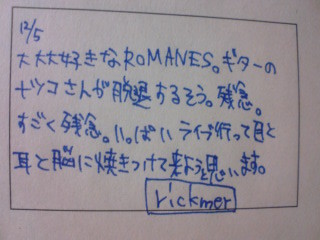 12/5
大大大好きなROMANES。ギターの
ゼツコさんが脱退するそう。残念。
すごく残念。いっぱいライブ行って目と
耳と脳に焼きつけて来ようと思います。
rickmer